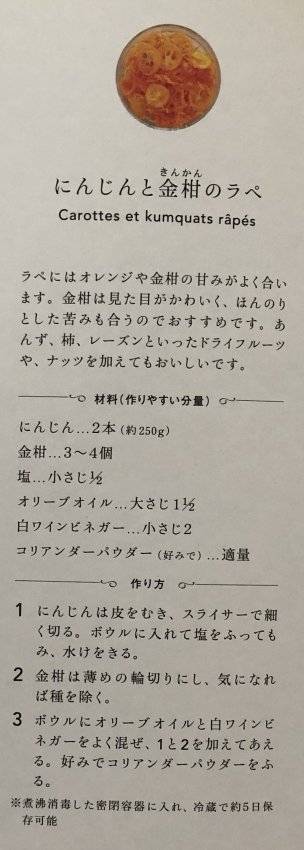 きんかん
にんじんと金柑のラペ
Carottes et kumquats râpés
ラペにはオレンジや金柑の甘みがよく合い
ます。金柑は見た目がかわいく、ほんのり
とした苦みも合うのでおすすめです。あ
んず、柿、レーズンといったドライフルーツ
や、ナッツを加えてもおいしいです。
材料(作りやすい分量)
にんじん…2本(約250g)
金柑…3〜4個
塩…小さじ½
オリーブオイル…大さじ1½
白ワインビネガー…小さじ2
コリアンダーパウダー(好みで)…適量
作り方
1 にんじんは皮をむき、スライサーで細
く切る。ボウルに入れて塩をふっても
み、水けをきる。
2 金柑は薄めの輪切りにし、気になれ
ば種を除く。
3 ボウルにオリーブオイルと白ワインビ
ネガーをよく混ぜ、1と2を加えてあえ
る。好みでコリアンダーパウダーをふ
る。
※煮沸消毒した密閉容器に入れ、冷蔵で約5日保
存可能